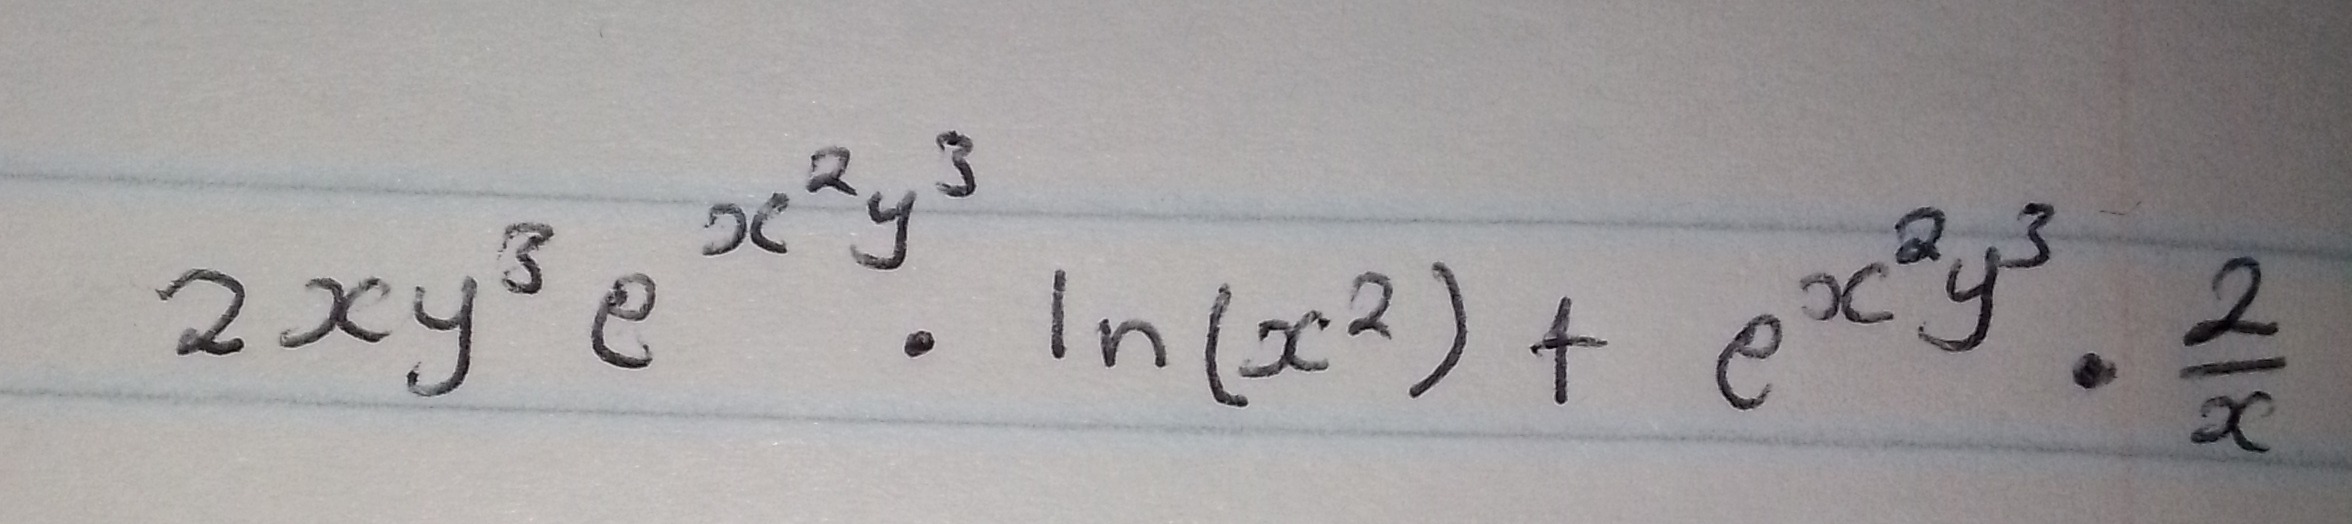 2xy³e^{x²y³} · ln(x²) + e^{x²y³} · \frac{2}{x}